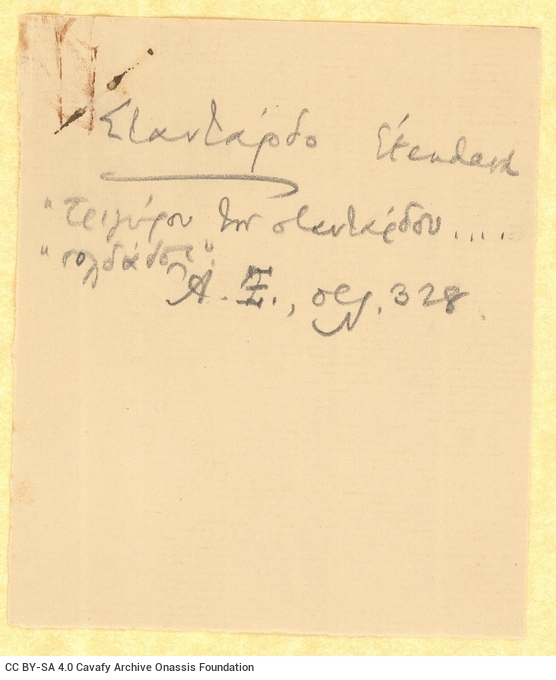 Σταντάρδο Étendard
"τριγύρου την σταντάρδου....
"σολδάδοι".
Α. Ξ., σελ. 328.
CC BY-SA 4.0 Cavafy Archive Onassis Foundation